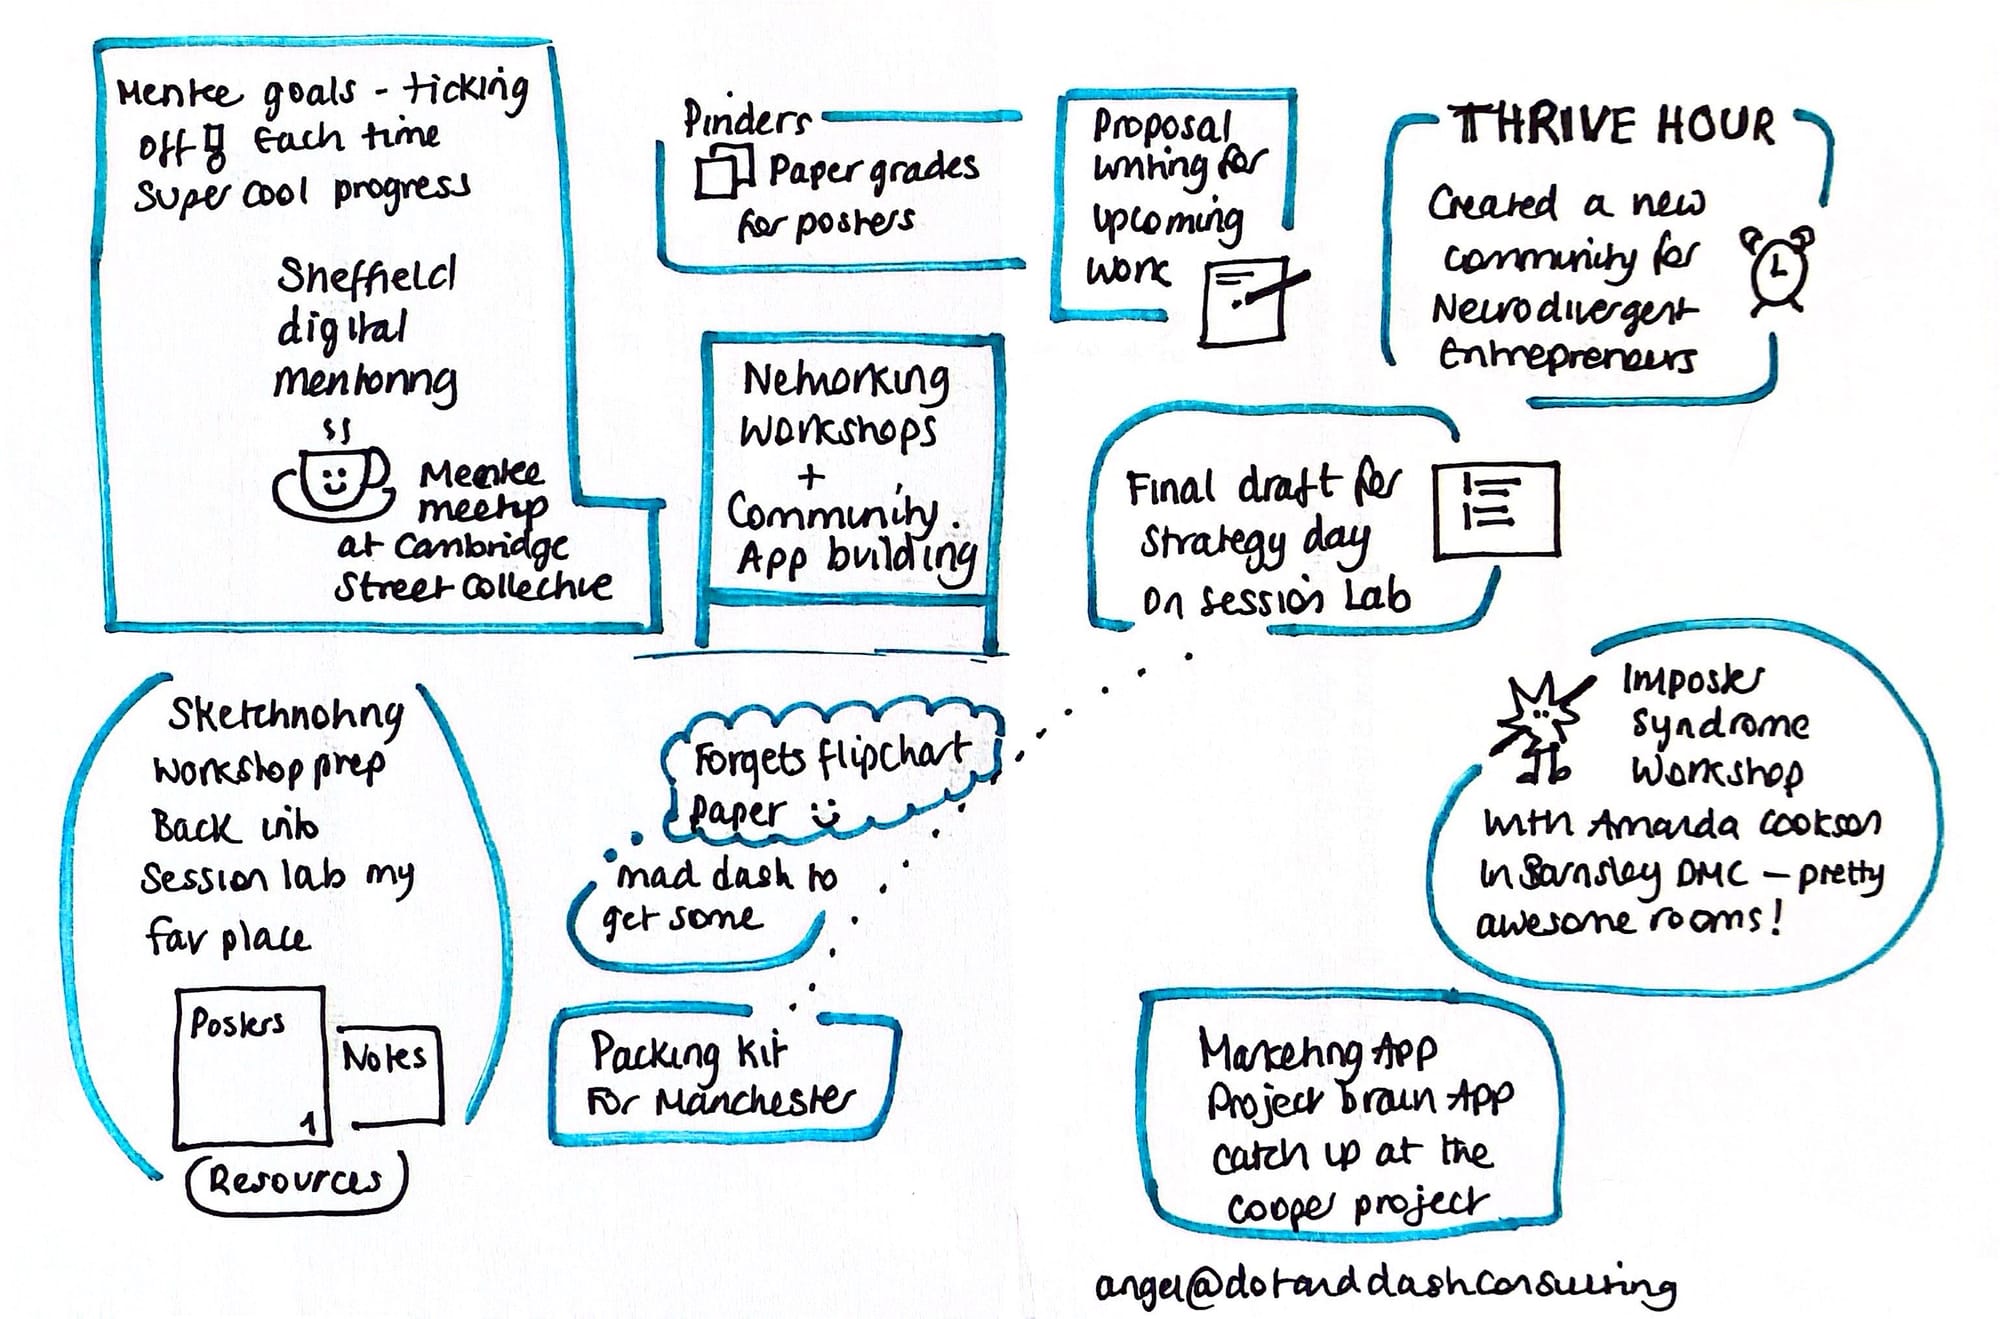 Mentee goals - ticking
off Each time
Super cool progress
Sheffield
digital
mentoring
Mentee
meetup
at Cambridge
Street Collective
Pinders
Paper grades
for posters
Proposal
writing for
upcoming
work
THRIVE HOUR
Created a new
community for
Neurodivergent
Entrepreneurs
Networking
Workshops
+
Community.
App building
Final draft for
Strategy day
on Session Lab
Sketchnoting
Workshop prep
Back into
Session lab my
fav place
Posters
1
Notes
Resources
Forgets flipchart
paper
mad dash to
get some
Packing kit
For Manchester
Imposter
Syndrome
Workshop
with Amanda Cookson
in Barnsley DMC - pretty
awesome rooms!
Marketing App
Project brain App
catch up at the
cooper project
angel@dotanddashconsulting